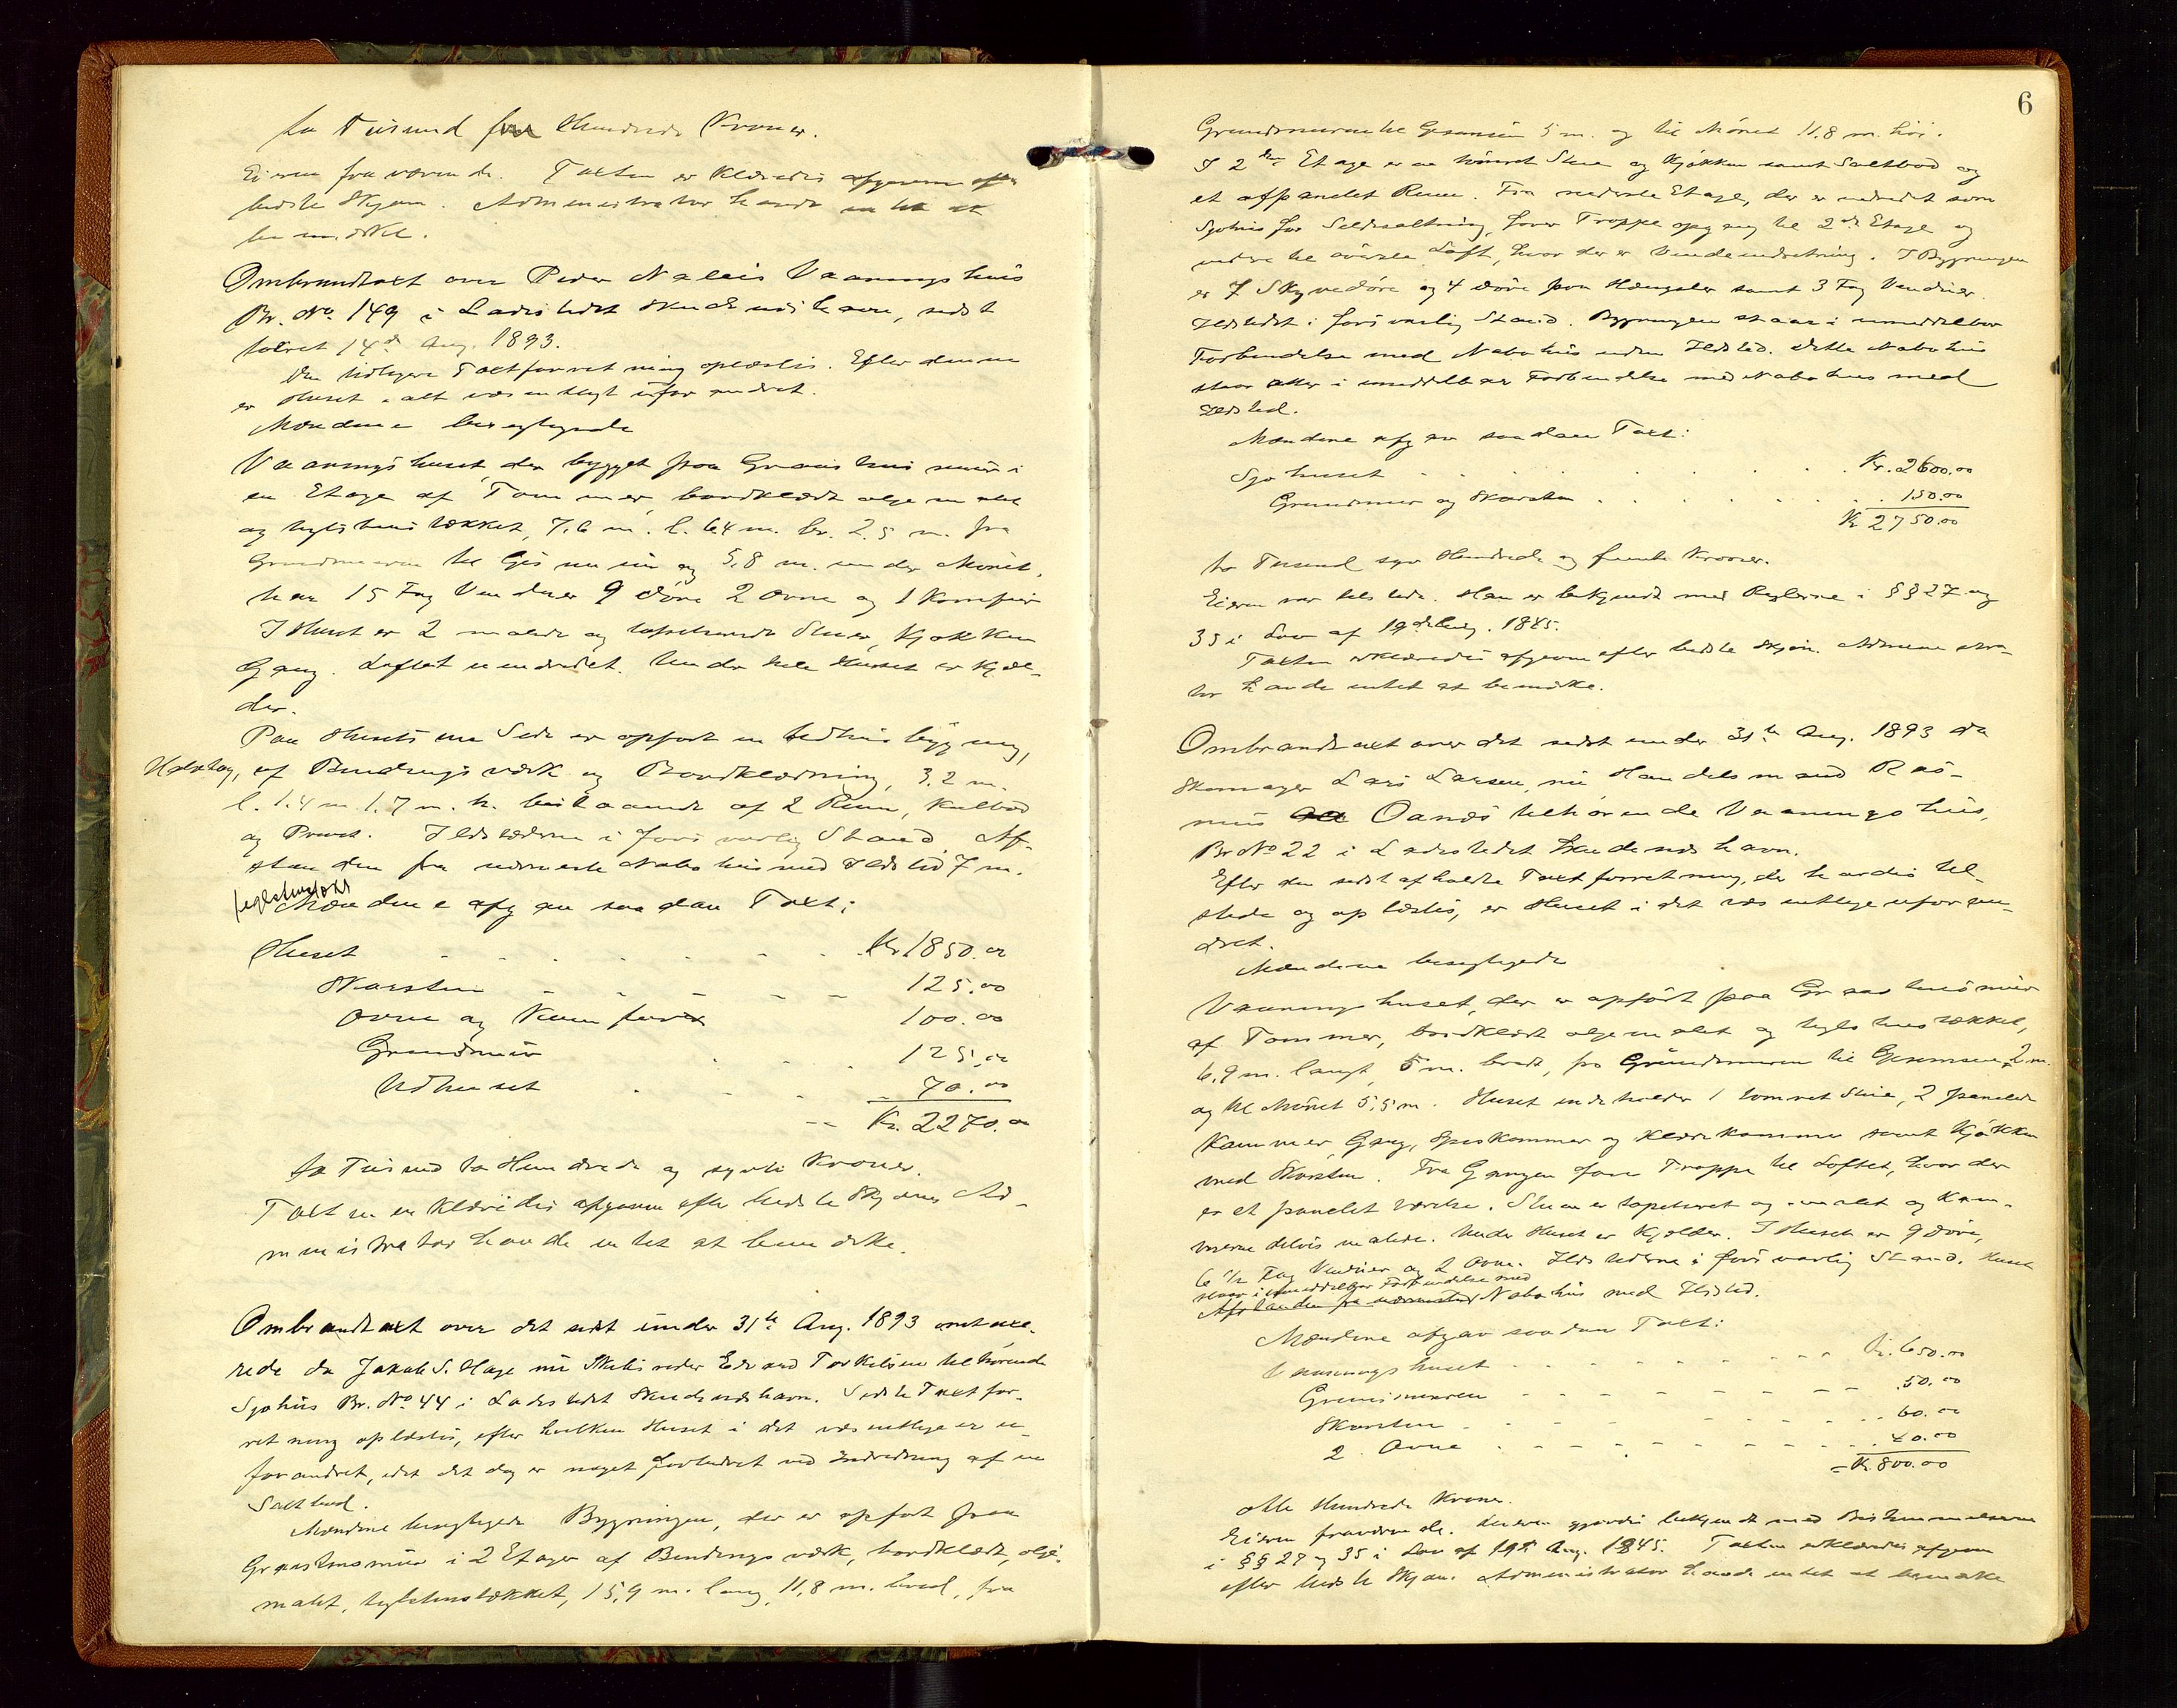 to Tusind fire Hundrede Kroner.
Eieren fraværende. Taxten erklæredes afgiven efter
bedste Skjøn. Administrator havde intet at
bemærke.
Ombrandtaxt over Peder Vaaningshus
Br. No. 149 i Ladestedet Skudesneshavn, sidst
taxeret 14de Aug. 1893.
Den tidligere Taxtforretning oplæstes. Efter denne
er Huset i alt væsentligt uforandret.
Mændene besigtigede
Vaaningshuset, der bygget paa Graastensmur i
en Etage af Tømmer, bordklædt oljemalet
og teglstenstækket, 7,6 m. l. 6,4 m. br. 2,5 m. fra
Grundmuren til Gesimsen og 5,8 m. under Mønet,
har 15 Fag Vinduer 9 Døre 2 Ovne og 1 Komfur
I Huset er 2 malede og tapetserede Stuer, Kjøkken
Gang. Loftet uindredet. Under hele Huset er Kjæl-
der.
Paa Husets ene Side er opført en Udhusbygning,
Halvtag, af Bindingsværk og Bordklædning, 3,2 m.
l. 1.4 m. 1.7 m. h. bestaaende af 2 Rum, Kulbod
og Privet. Ildstederne i forsvarlig Stand. Af-
standen fra nærmeste Nabohus med Ildsted 7 m.
teglstenstækt
Mændene afgav saadan Taxt:
Huset - - - - - - Kr 1850.00
Skorsten - - - - - 125.00
Ovne og Komfur 100.00
Grundmur - - - 125.00
Udhuset - - - - 70.00
-- Kr. 2270.00
to Tusind to Hundrede og sytti Kroner.
Taxten erklæredes afgiven efter bedste Skjøn. Ad-
ministrator havde intet at bemærke.
Ombrandtaxt over det sidst under 31te Aug. 1893 omtaxe-
rede da Jakob S. Hage nu Skibsreder Edvard Torkelsen tilhørende
Sjøhus Br. No. 44 i Ladestedet Skudesneshavn. Sidste Taxtfor-
retning oplæstes, efter hvilken Huset i det væsentlige er u-
forandret, idet det dog er noget forbedret ved Indredning af en
Saltbod.
Mændene besigtigede Bygningen, der er opført paa
Graastensmur i 2 Etager af Bindingsværk, bordklædt, olje-
malet, teglstenstækket, 15,9 m. lang, 11,8 m. bred, fra
6
Grundmuren til Gesimsen 5 m. og til Mønet 11.8 m. høi.
I 2den Etage er en tømret Stue og Kjøkken samt Saltbod og
et afpanelet Rum. Fra nederste Etage, der er indredet som
Sjøhus for Sildesaltning, fører Trappe opgang til 2den Etage og
videre til øverste Loft, hvor der er Vindeindretning. I Bygningen
er 7 Skyvedøre og 4 Døre paa Hængsler samt 3 Fag Vinduer.
Ildstedet i forsvarlig Stand. Bygningen staar i umiddelbar
Forbindelse med Nabohus uden Ildsted. Dette Nabohus
staar atter i umiddelbar Forbindelse med Nabohus med
Ildsted.
Mændene afgav saadan Taxt:
Sjøhuset . . . . . . . Kr. 2600.00
Grundmur og Skorsten . . . . . . 150.00
Kr 2750.00
to Tusind syv Hundrede og femti Kroner.
Eieren var tilstede. Han er bekjendt med Reglerne i §§ 27 og
35 i Lov af 19de Aug. 1845.
Taxten erklæredes afgiven efter bedste Skjøn. Administra-
tor havde intet at bemærke.
Ombrandtaxt over det sidst under 31te Aug. 1893 da
Skomager Lars Larsen, nu Handelsmand Ras-
mus Oanæs tilhørende Vaaningshus,
Br No 22 i Ladestedet Skudesneshavn.
Efter den sidst afholdte Taxtforretning, der havdes til-
stede og oplæstes, er Huset i det væsentlige uforan-
dret.
Mændene besigtigede
Vaaningshuset, der er opført paa Graastensmur
af Tømmer, bordklædt oljemalet og teglstenstækket,
6,9 m. langt, 5 m. bredt, fra Grundmuren til Gesimsen 2 m.
og til Mønet 5,5 m. Huset indeholder 1 tømret Stue, 2 panelede
Kammer, Gang, Spiskammer og Klædekammer samt Kjøkken
med Skorsten. Fra Gangen fører Trappe til Loftet, hvor der
er et panelet Værelse. Stuen er tapetseret og malet og Kam-
merne delvis malede. Under Huset er Kjelder. I Huset er 9 Døre,
6 1/2 Fag Vinduer og 2 Ovne. Ildstederne i forsvarlig Stand. Huset
staar i umiddelbar Forbindelse med
Afstanden fra nærmeste Nabohus med Ildsted.
Mændene afgav saadan Taxt:
Vaaningshuset - - - - - - - - Kr. 650.00
Grundmuren - - - - - - - - 50.00
Skorsten - - - - - - - - 60.00
2 Ovne - - - - - - - - 40.00
= Kr. 800.00
otte Hundrede Kroner.
Eieren fraværende. Eieren gjordes bekjendt med Bestemmelserne
i §§ 27 og 35 i Lov af 19de Aug. 1845. Taxten erklæredes afgiven
efter bedste Skjøn. Administrator havde intet at bemærke